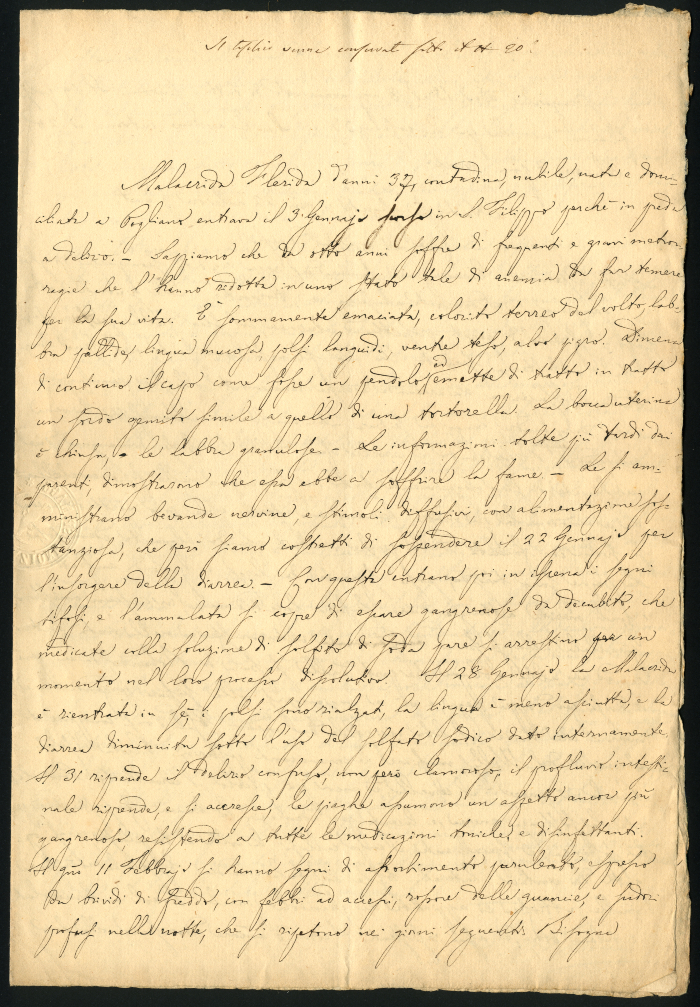 Il teschio venne conservato sotto il N 20.
Malacrida Florida d'anni 37, contadina, nubile, nata e domi-
ciliata a Pogliano entrava il 3 Gennajo in S. Filippo perchè in preda
a delirio. - Sappiamo che da otto anni soffre di frequenti e gravi metror-
ragie che l'hanno ridotta in uno stato tale di anemia da far temere
per la sua vita. È sommamente emaciata, colorito terreo del volto, lab-
bra pallide, lingua mucosa, polsi languidi, ventre teso, alvo pigro. Dimena
di continuo il capo come fosse un pendolo, ed emette di tratto in tratto
un sordo gemito simile a quello di una tortorella. La bocca uterina
è chiusa, le labbra granulose. - Le informazioni tolte più tardi dai
parenti, dimostrarono che essa ebbe a soffrire la fame. - Le si am-
ministrano bevande nervine, e stimoli diffusivi, con alimentazione sos-
tanziosa, che però siamo costretti di sospendere il 22 Gennajo per
l'insorgere della diarrea. - Con questa entrano poi in iscena i segni
tifosi, e l'ammalata si copre di escare gangrenose da decubito, che
medicate colla soluzione di solfito di soda pare si arrestino per un
momento nel loro processo dissolutivo. Il 28 Gennajo la Malacrida
è rientrata in sè, i polsi sono rialzati, la lingua è meno asciutta, e la
diarrea diminuita sotto l'uso del solfato sodico dato internamente.
Il 31 riprende il delirio confuso, non però clamoroso, il profluvio intesti-
nale riprende, e si accresce, le piaghe assumono un aspetto ancor più
gangrenoso resistendo a tutte le medicazioni toniche e disinfettanti.
Il giù 11 Febbrajo si hanno segni di assorbimento purulento, espresso
da brividi di freddo, con febbri ad accessi, rossore delle guancie, e sudori
profusi nella notte, che si ripetono nei giorni seguenti. Bisogna